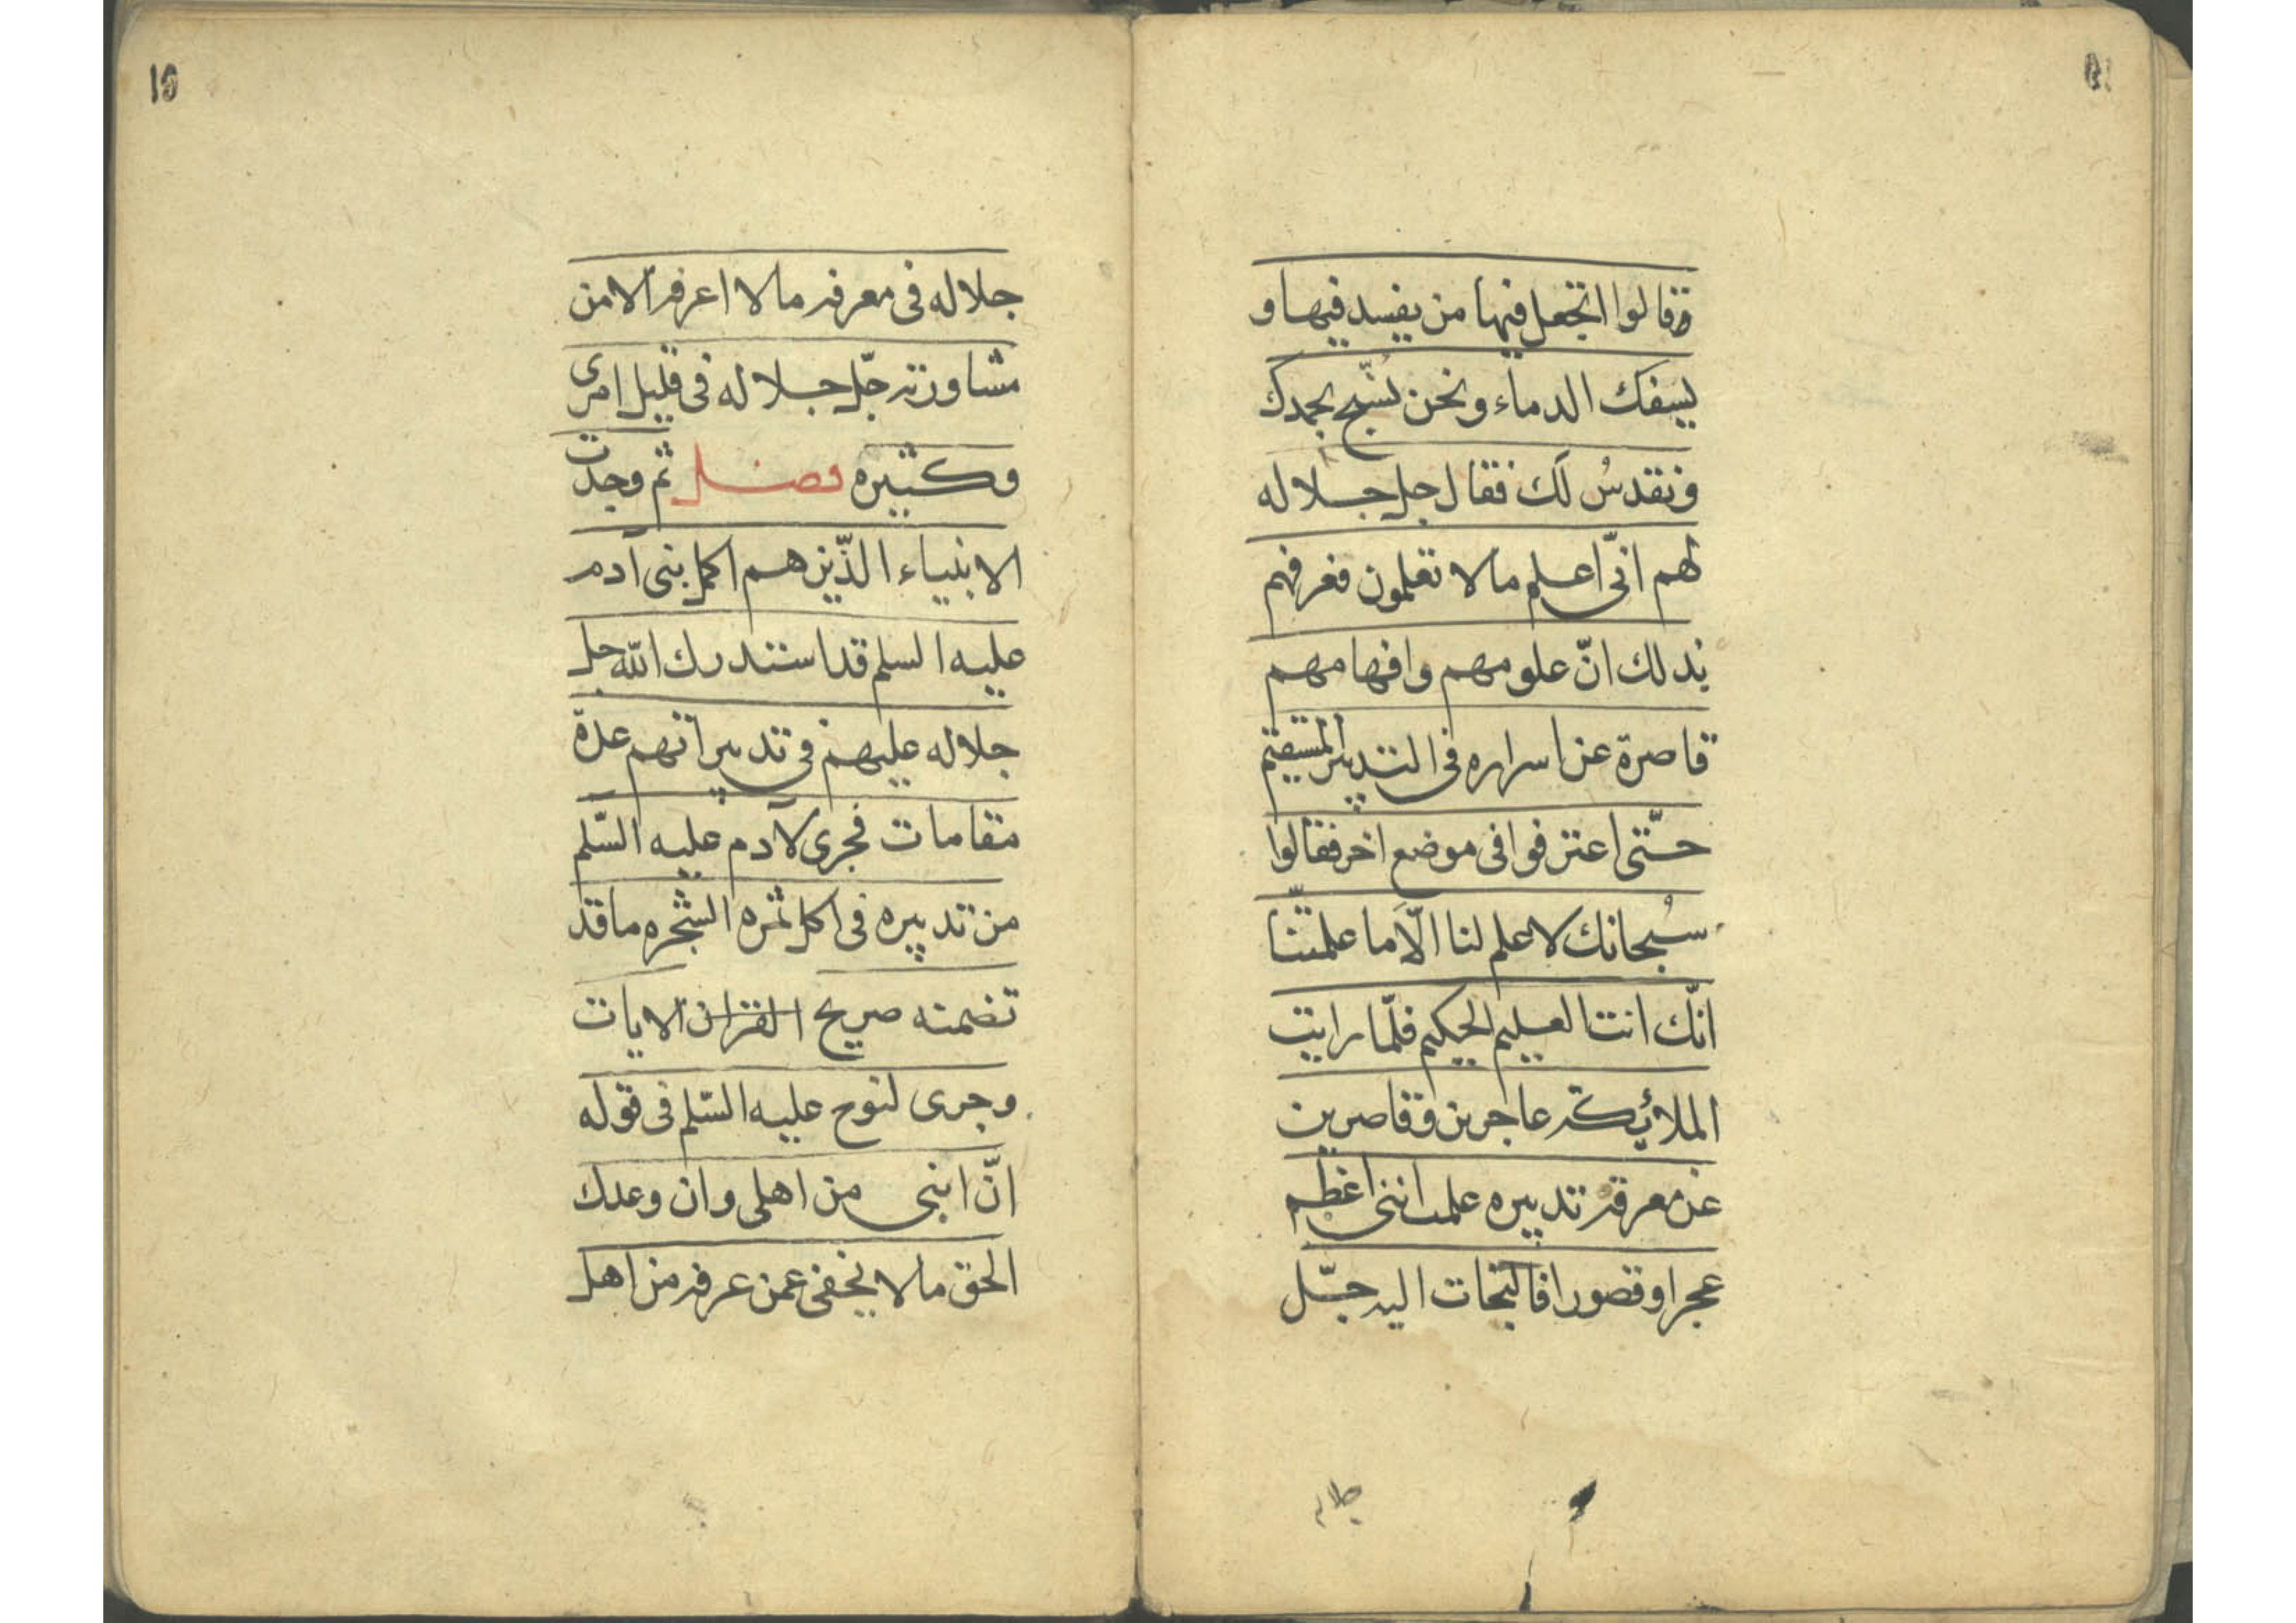 وقالوا اتجعل فيها من يفسد فيها و
يسفك الدماء ونحن نُسّبح بحمدك
ونقدسُ لك فقال جل جلاله
لهم انّى اعلم مالا تعلمون فعرفهم
بذلك انّ علومهم وافهامهم
قاصرة عن اسراره فى التدبير المستقيم
حتّى اعترفوا فى موضع اخر فقالوا
سُبحانك لا علم لنا الّا ما علمتنا
انّك انت العليم الحكيم فلمّا رايت
الملائكة عاجزين وقاصرين
عن معرفة تدبيره علمت اننى اعظم
عجزا وقصورا فالتجات اليه جلّ
جلاله
جلاله فى معرفة مالا اعرفه الا من
مشاورته جلّ جلاله فى قليل امرى
وكثيره فصل ثم وجدت
الانبياء الذّين هم اكمل بنى آدم
عليه السلم قد استدرك الله جل
جلاله عليهم فى تدبيراتهم عدة
مقامات فجرى لآدم عليه السّلم
من تدبيره فى اكل ثمره الشجره ما قد
تضمنه صريح القران الايات
وجرى لنوح عليه السّلم فى قوله
انّ ابنى من اهلى وان وعدك
الحق مالا يخفى عمن عرفه من اهل